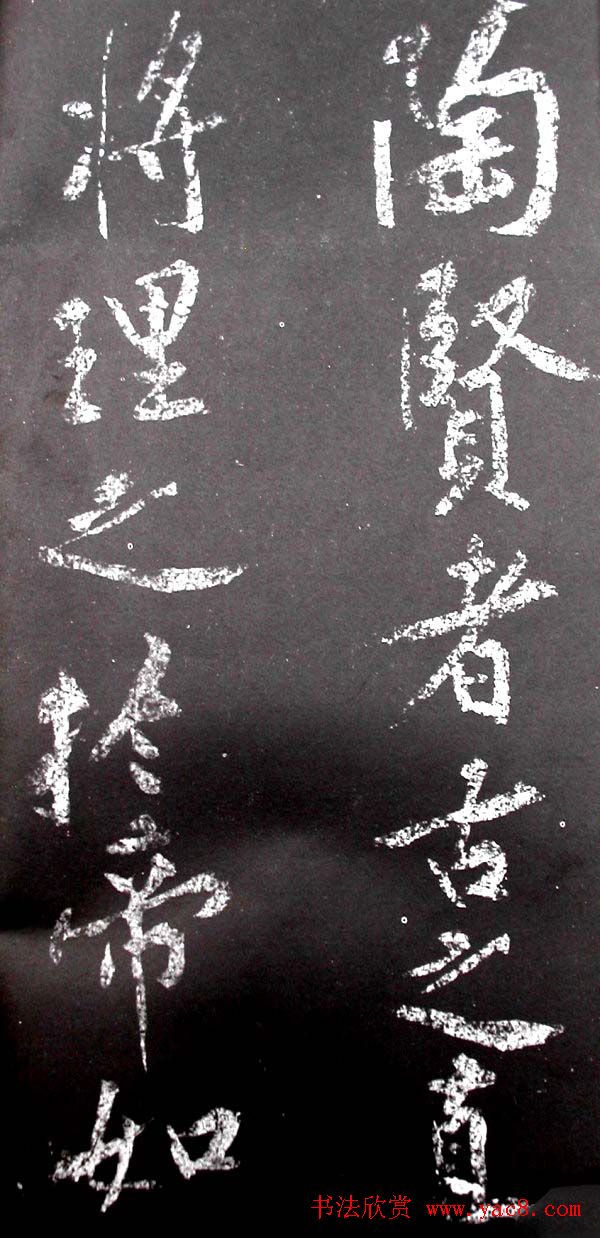 陶賢者古之直
將理之於帝如
书法欣赏 www.yac8.com